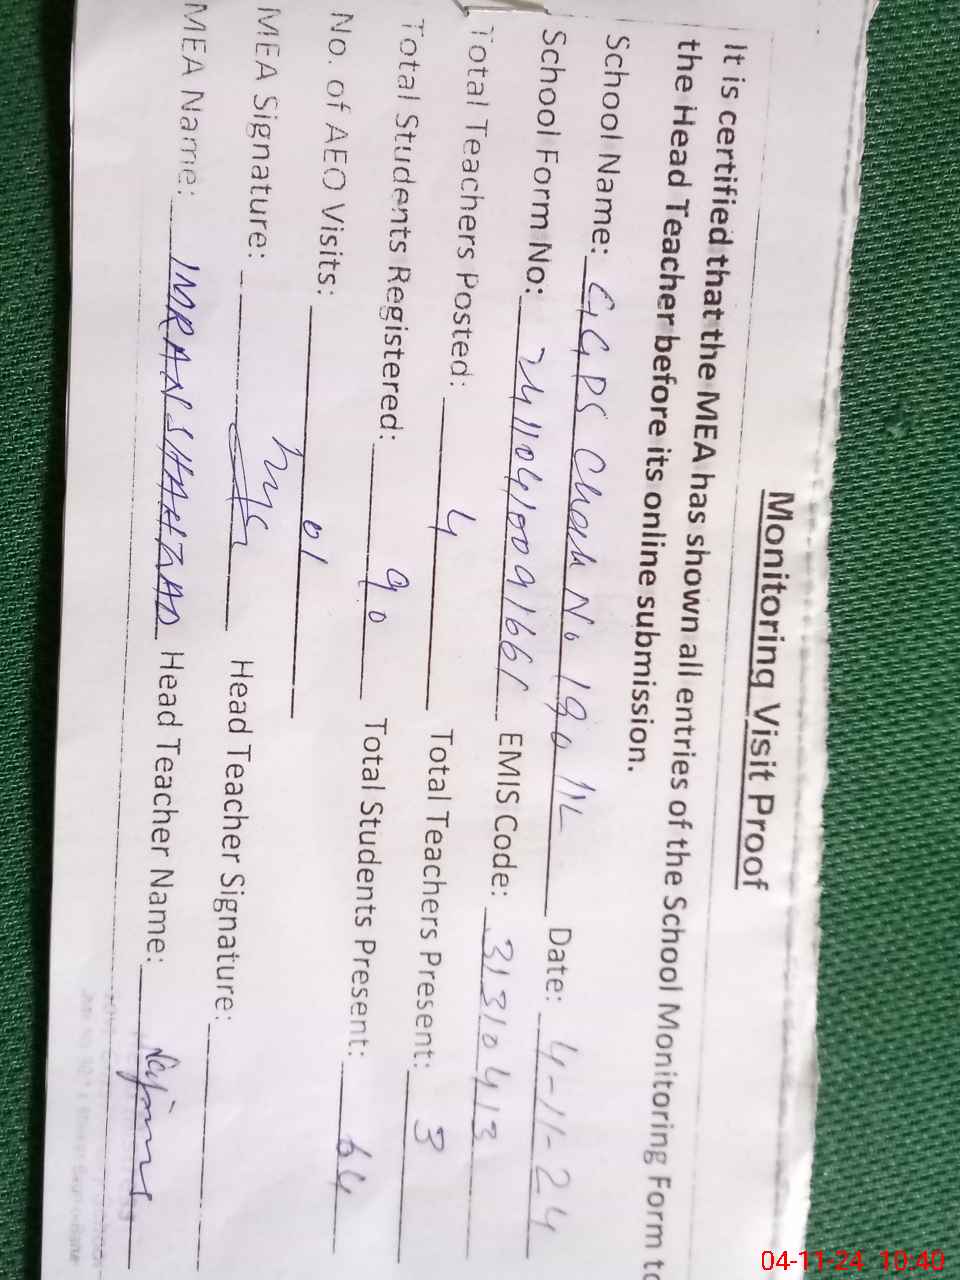 Monitoring Visit Proof
It is certified that the MEA has shown all entries of the School Monitoring Form to
the Head Teacher before its online submission.
School Name: GGPS Chack No 190 11L Date: 4-11-24
School Form No: 24110410091661 EMIS Code: 31310413
Total Teachers Posted: 4 Total Teachers Present: 3
Total Students Registered: 90 Total Students Present: 64
No. of AEO Visits: 01
MEA Signature: Head Teacher Signature:
MEA Name: IMRAN SHAHZAD Head Teacher Name:
04-11-24 10:40